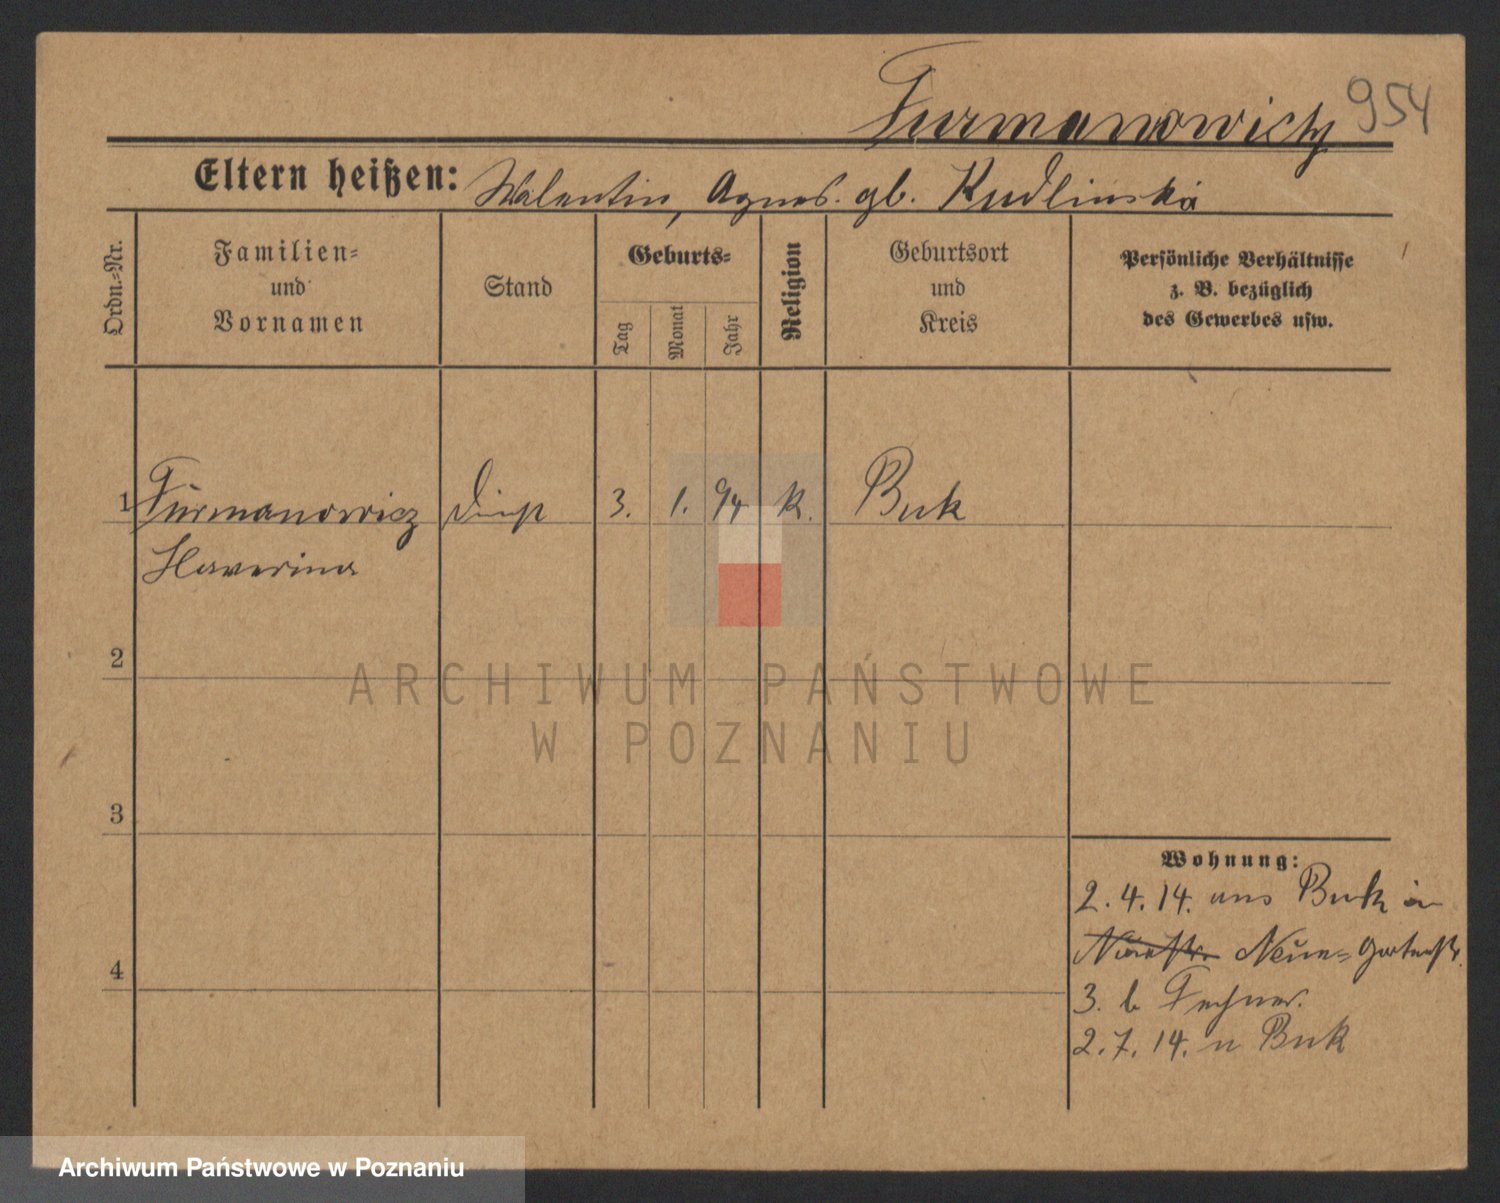 Furmanowicz 954
Eltern heißen: Walentin, Agnes gb. Kudlinska
Ordn.-Nr.
Familien-
und
Vornamen
Stand
Geburts-
Tag
Monat
Jahr
Religion
Geburtsort
und
Kreis
Persönliche Verhältnisse
z. B. bezüglich
des Gewerbes usw.
1 Furmanowicz 3. 1. 94 k. Buk
2
3
4
Wohnung:
2.4.14. aus Buk in
Neue- Gartenstr.
3. b Fechner.
2.7.14. n Buk
ARCHIWUM PAŃSTWOWE
W POZNANIU
Archiwum Państwowe w Poznaniu